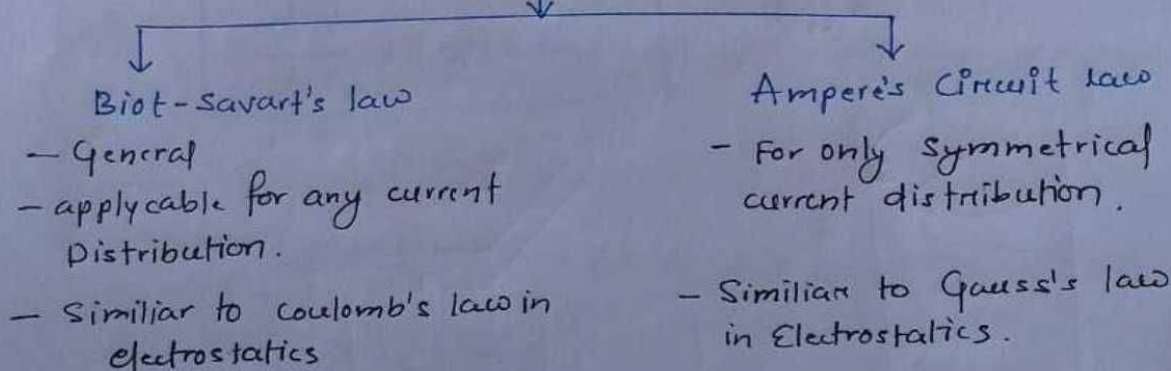 Biot-Savart's law
- General
- applycable for any current
Distribution.
- Similiar to coulomb's law in
electrostatics
Ampere's Circuit law
- For only symmetrical
current distribution.
- Similiar to Gauss's law
in Electrostatics.